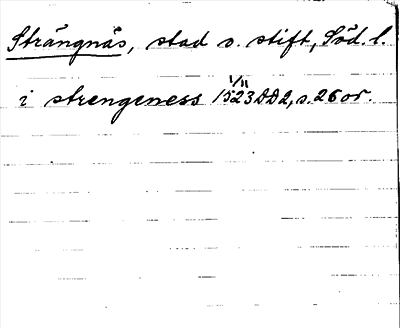 Strängnäs, stad o. stift, Söd. l.
i strengeness 1/11 1523 DD2, s. 26 or.